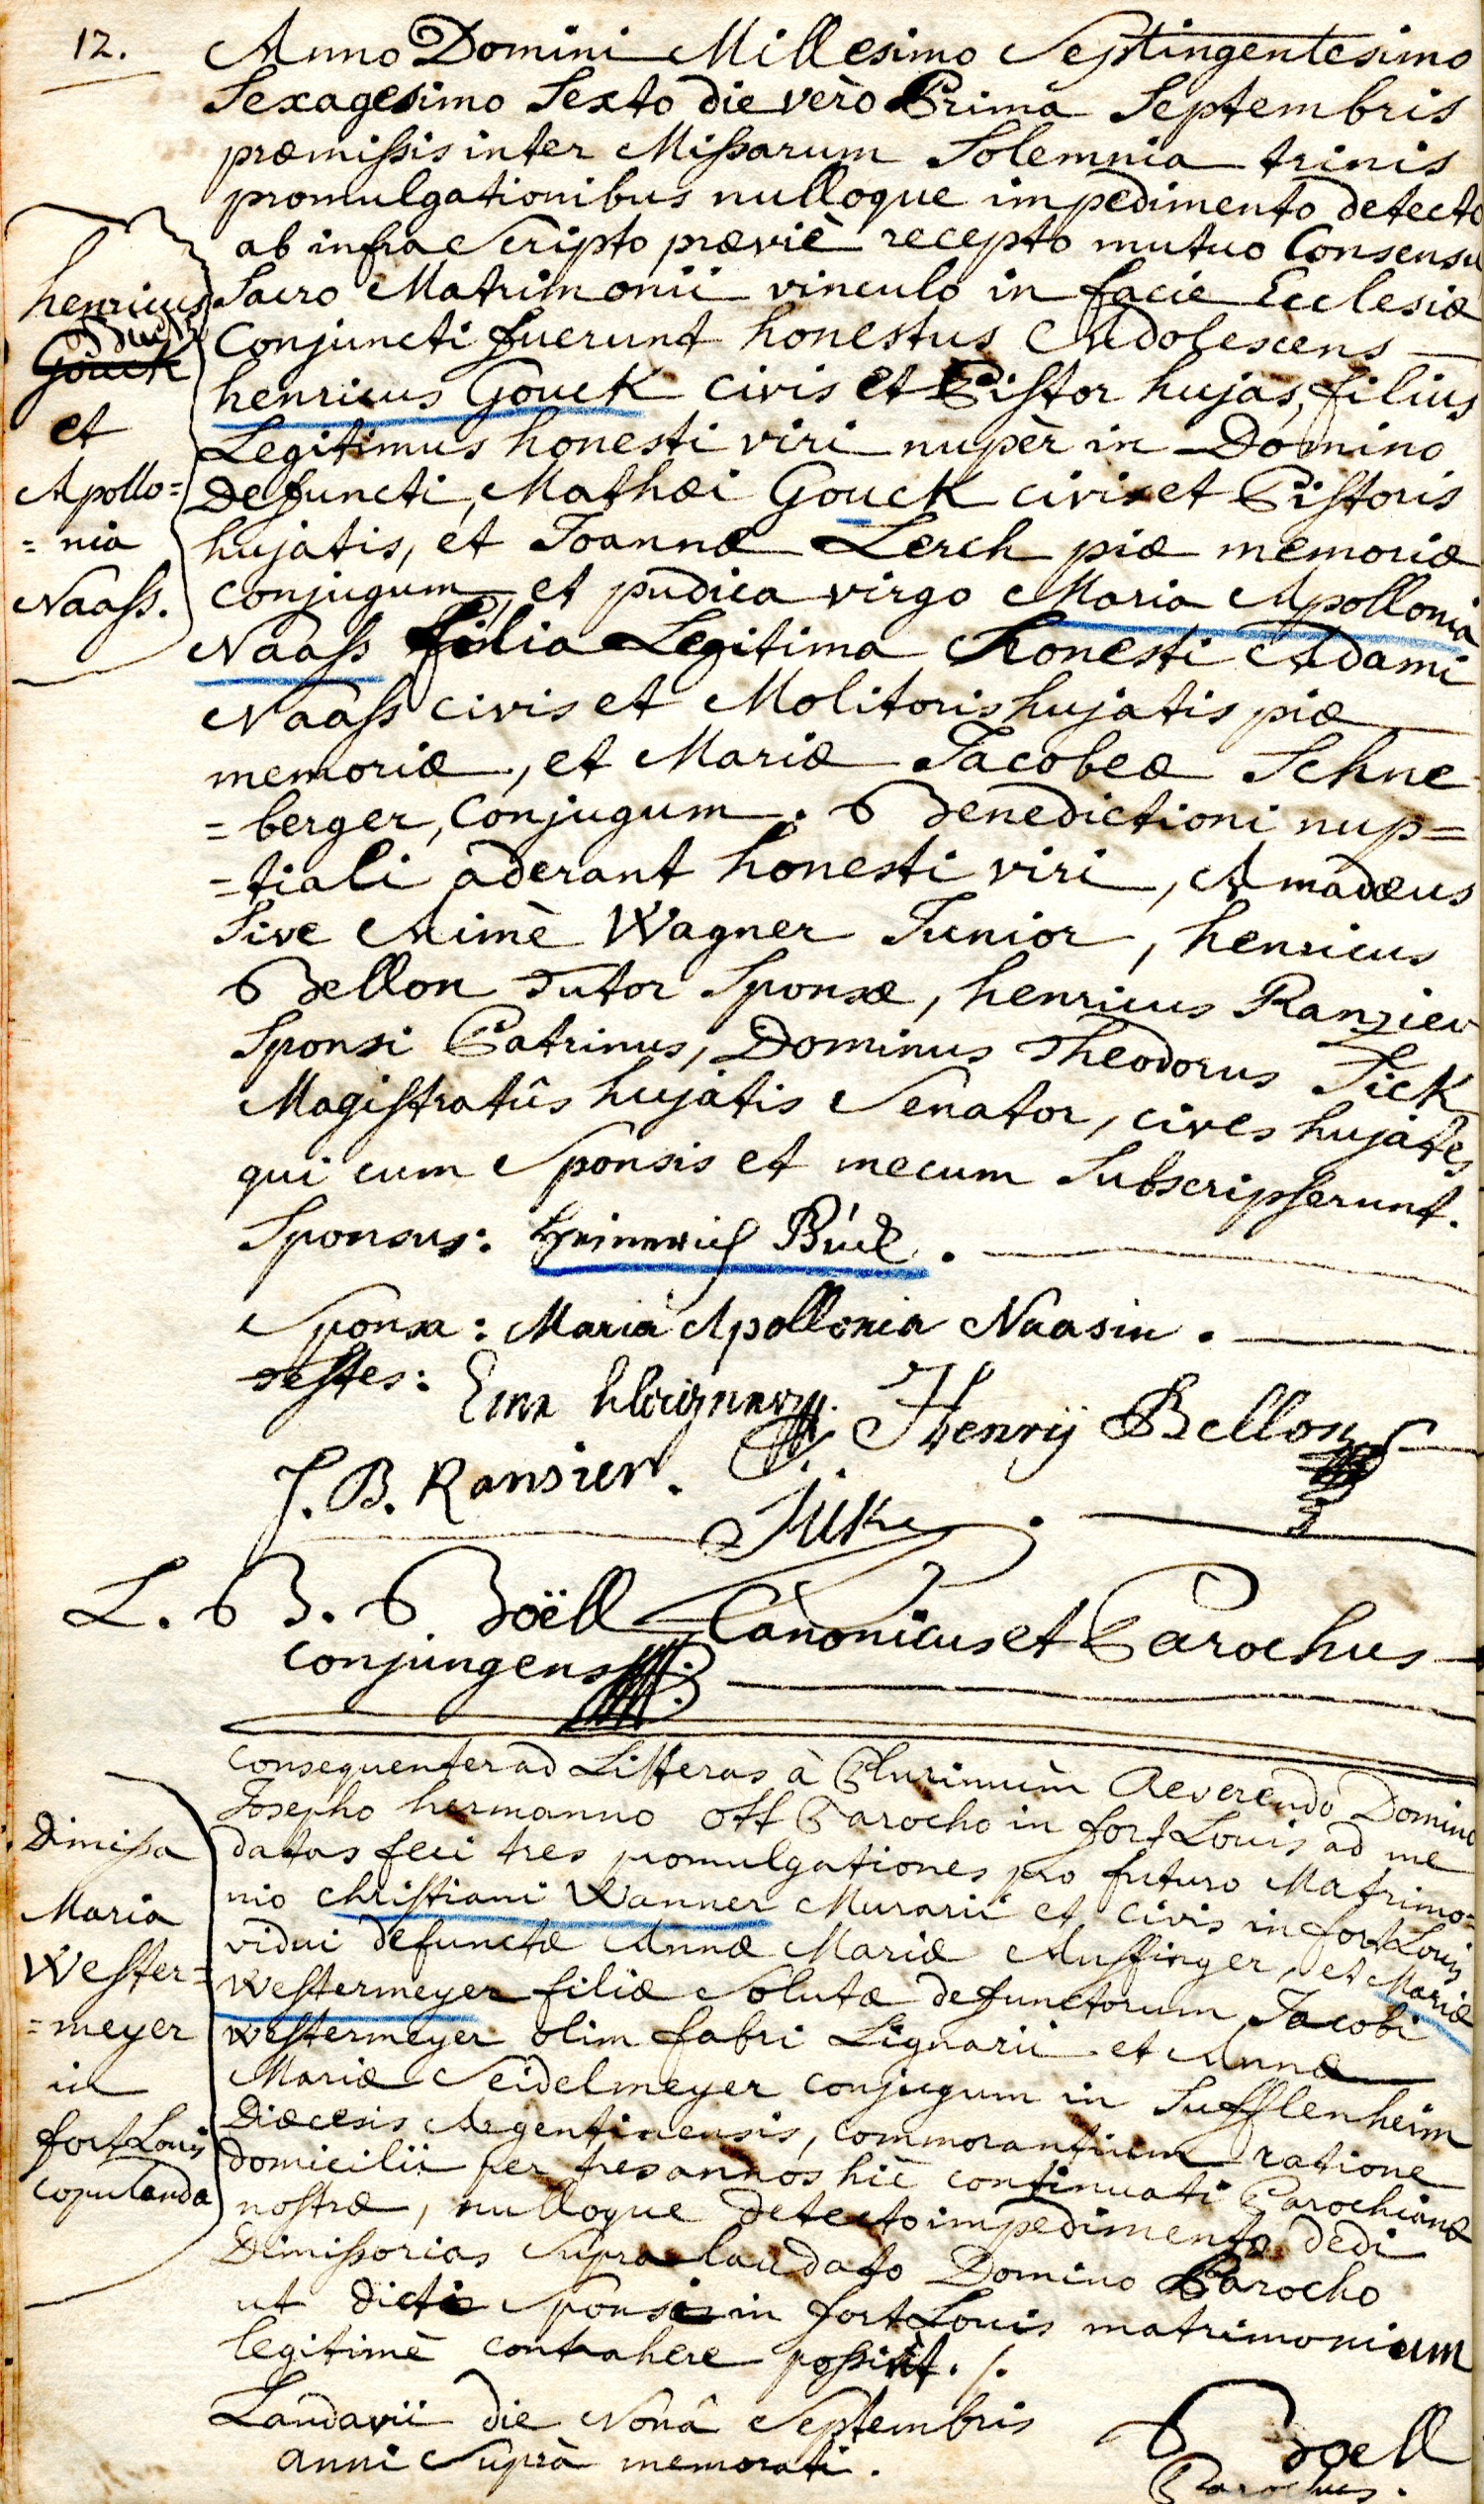 12.
Anno Domini Millesimo Septingentesimo
Sexagesimo Sexto die verò Prima Septembris
præmissis inter Missarum Solemnia trinis
promulgationibus nulloque impedimento detecto
ab infra Scripto præviè recepto mutuo Consensu
Sacro Matrimonii vinculo in facie Ecclesiæ
Conjuncti fuerunt honestus Adolescens
henricus Gouck civis et Pistor hujas, filius
Legitimus honesti viri nupèr in Domino
Defuncti, Mathæi Gouck civis et Pistoris
hujatis, et Joannæ Lerch piæ memoriæ
conjugum, et pudica virgo Maria Apollonia
Naass filia Legitima honesti Adami
Naass civis et Molitoris hujatis piæ
memoriæ, et Mariæ Jacobeæ Schne
=berger, Conjugum. Benedictioni nup=
=tiali aderant honesti viri, Amadæus
Sive Aimè Wagner Junior, henricus
Bellon Tutor Sponsæ, henricus Ranzier
Sponsi Patrinus, Dominus Theodorus Sick
Magistratûs hujatis Senator, cives hujates
qui cum Sponsis et mecum Subscripserunt.
henricus
Gouck
et
Apollo=
=nia
Naass.
Sponsus: Heinrich Búck.
Sponsa: Maria Apollonia Naasin.
Testes:
Henrÿ Bellon
J. B. Ransier.
L. B. Boëll Canonicus et Parochus
conjungens
Dimissa
Maria
Wester=
=meyer
in
fort Louis
copulanda
consequenter ad Litteras à Plurimùm Reverendo Domino
Josepho hermanno Ott Parocho in fort Louis ad me
datas feci tres promulgationes pro futuro Matrimo=
nio christiani Wanner Murarii et civis in fort Louis
vidui defunctæ Annæ Mariæ Aussinger, et Mariæ
Westermeyer filiæ Solutæ defunctorum Jacobi
Westermeyer olim fabri Lignarii et Annæ
Mariæ Seidelmeyer conjugum in Sufflenheim
Diæcesis Argentinensis, commorantium ratione
domicilii per tres annos hìc continuati Parochianæ
nostræ, nulloque detecto impedimento dedi
Dimissorias Supra laudato Domino Parocho
ut dicti Sponsi in fort Louis matrimonium
legitimè contrahere possint./.
Landavii die Nonâ Septembris
anni Suprà memorati.
Boell
Parochus.